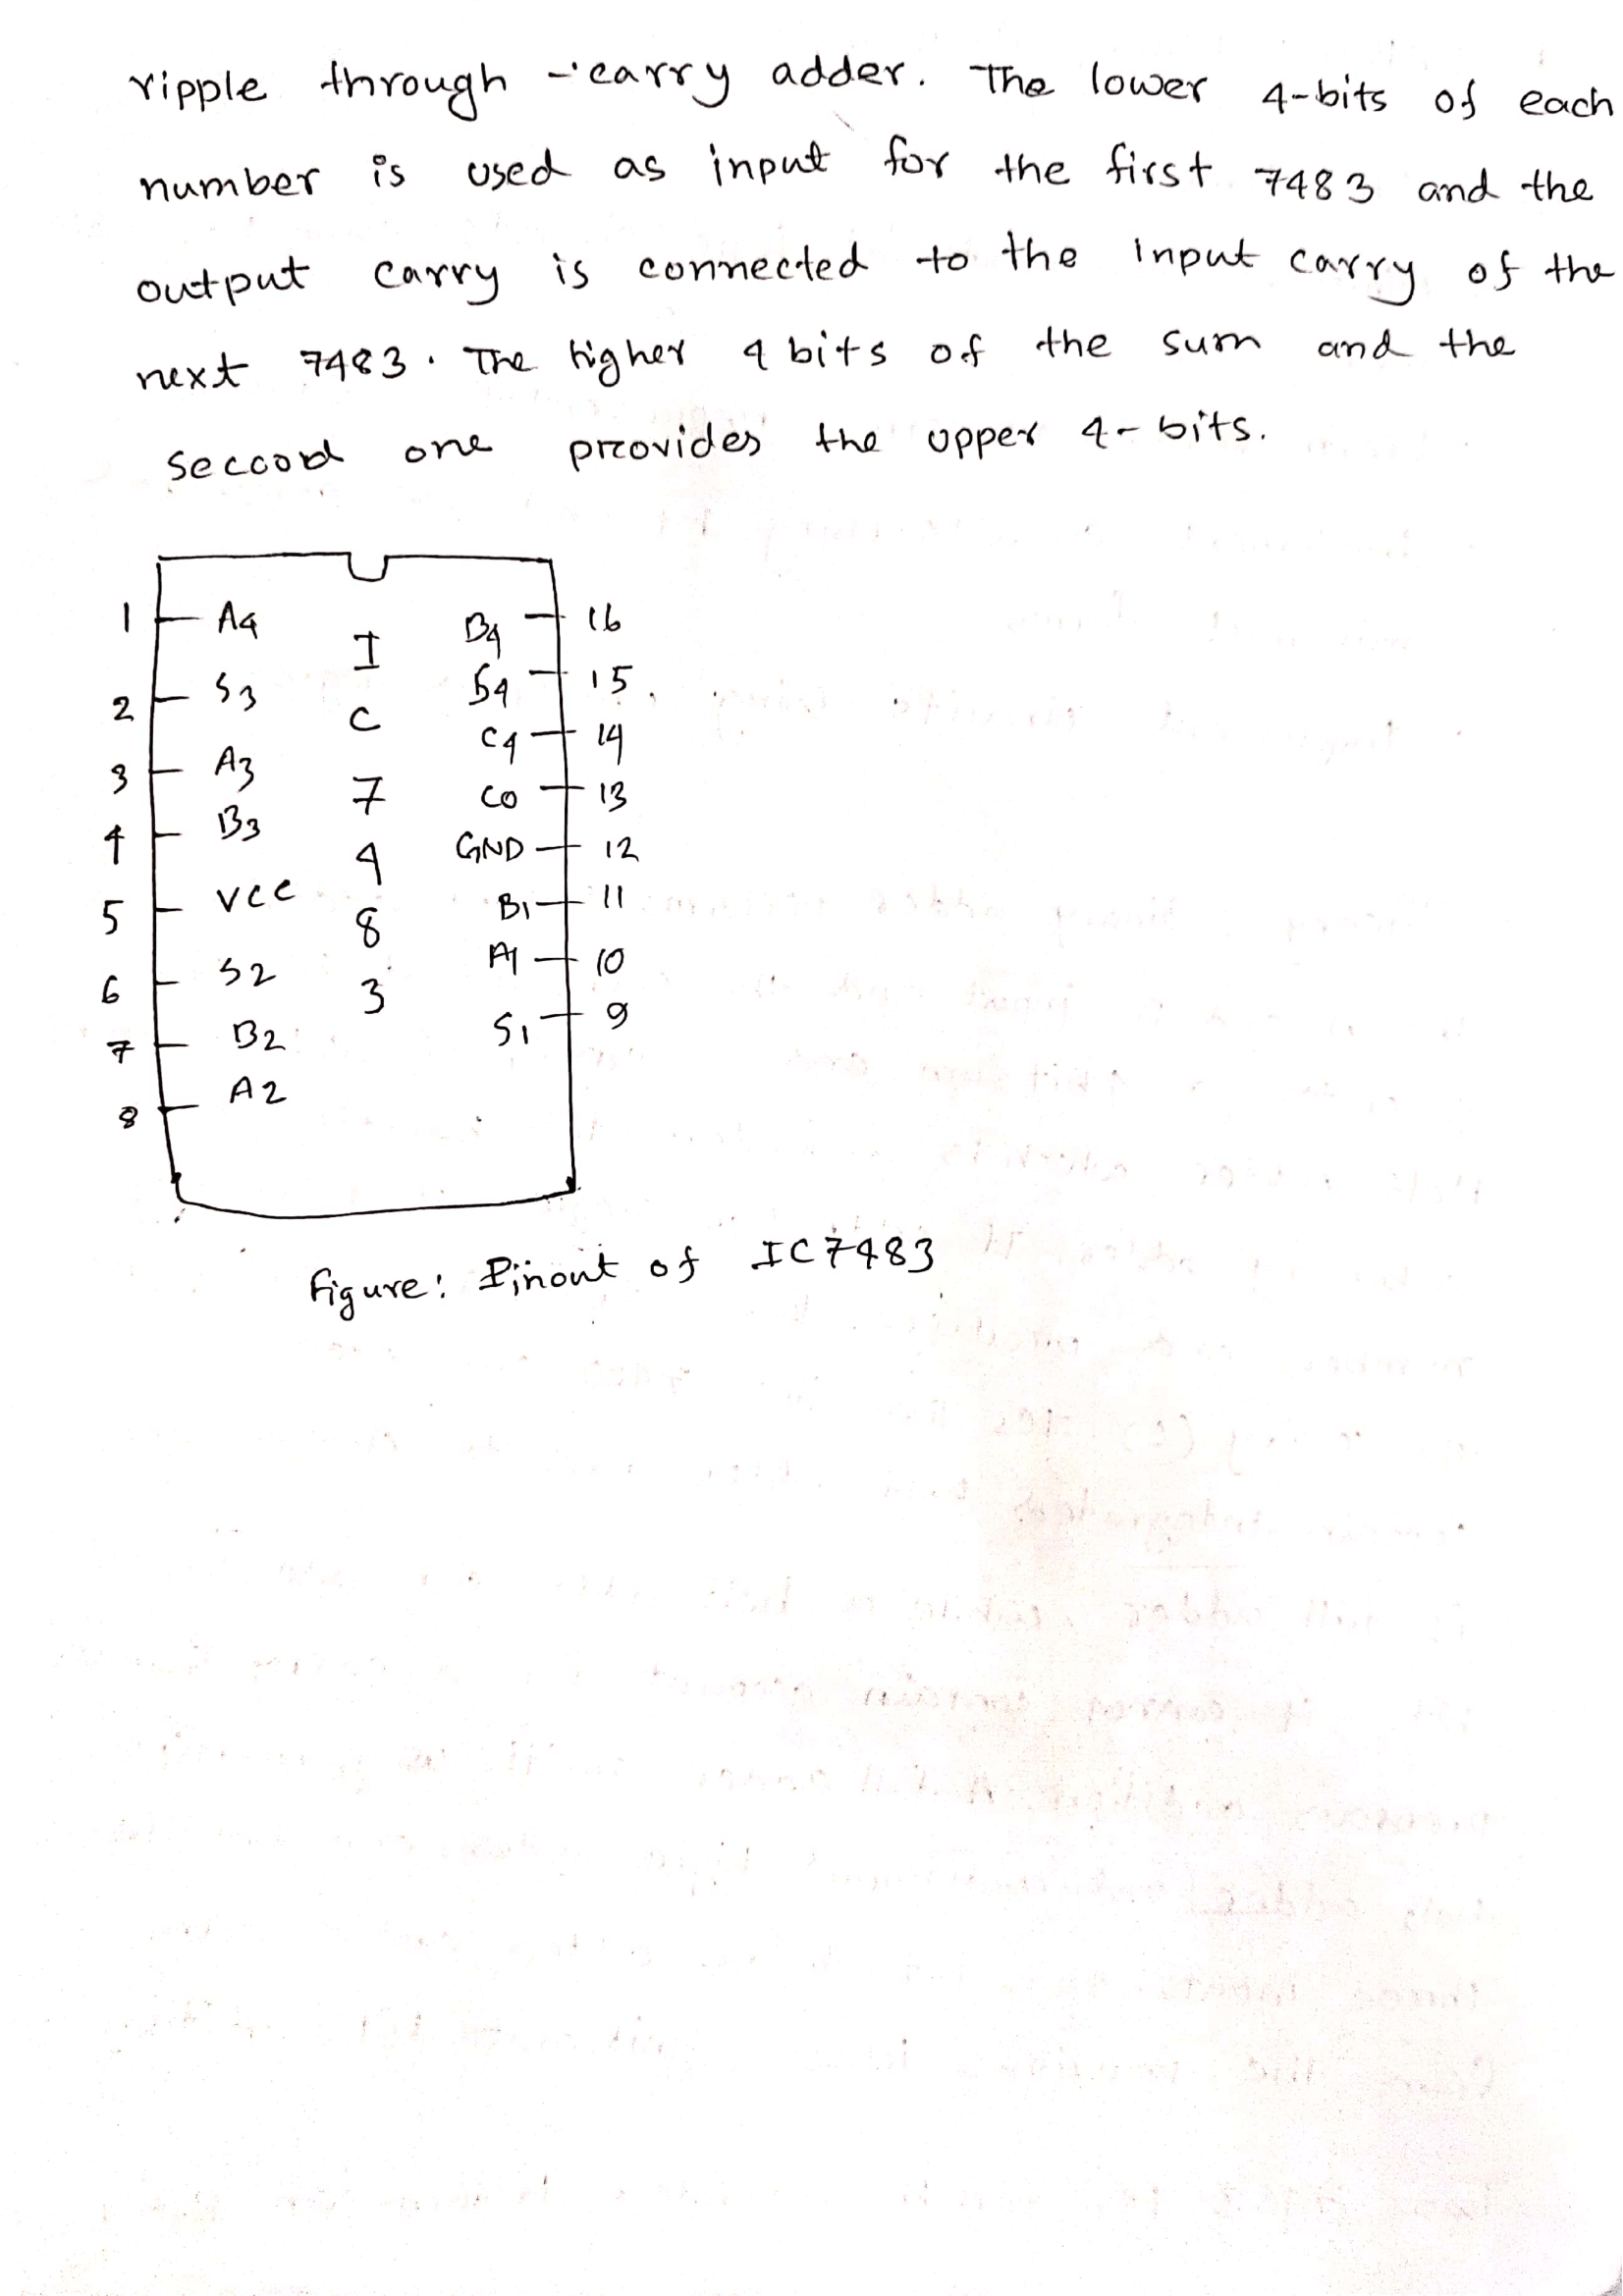 ripple through - carry adder. The lower 4-bits of each
number is used as input for the first 7483 and the
output carry is connected to the input carry of the
next 7483. The higher 4 bits of the sum and the
seccond one provides the upper 4-bits.
1 A4 I B4 16
2 S3 C S4 15
3 A3 7 C4 14
4 B3 4 C0 13
5 VCC 8 GND 12
6 S2 3 B1 11
7 B2 A1 10
8 A2 S1 9
figure: Pinout of IC7483